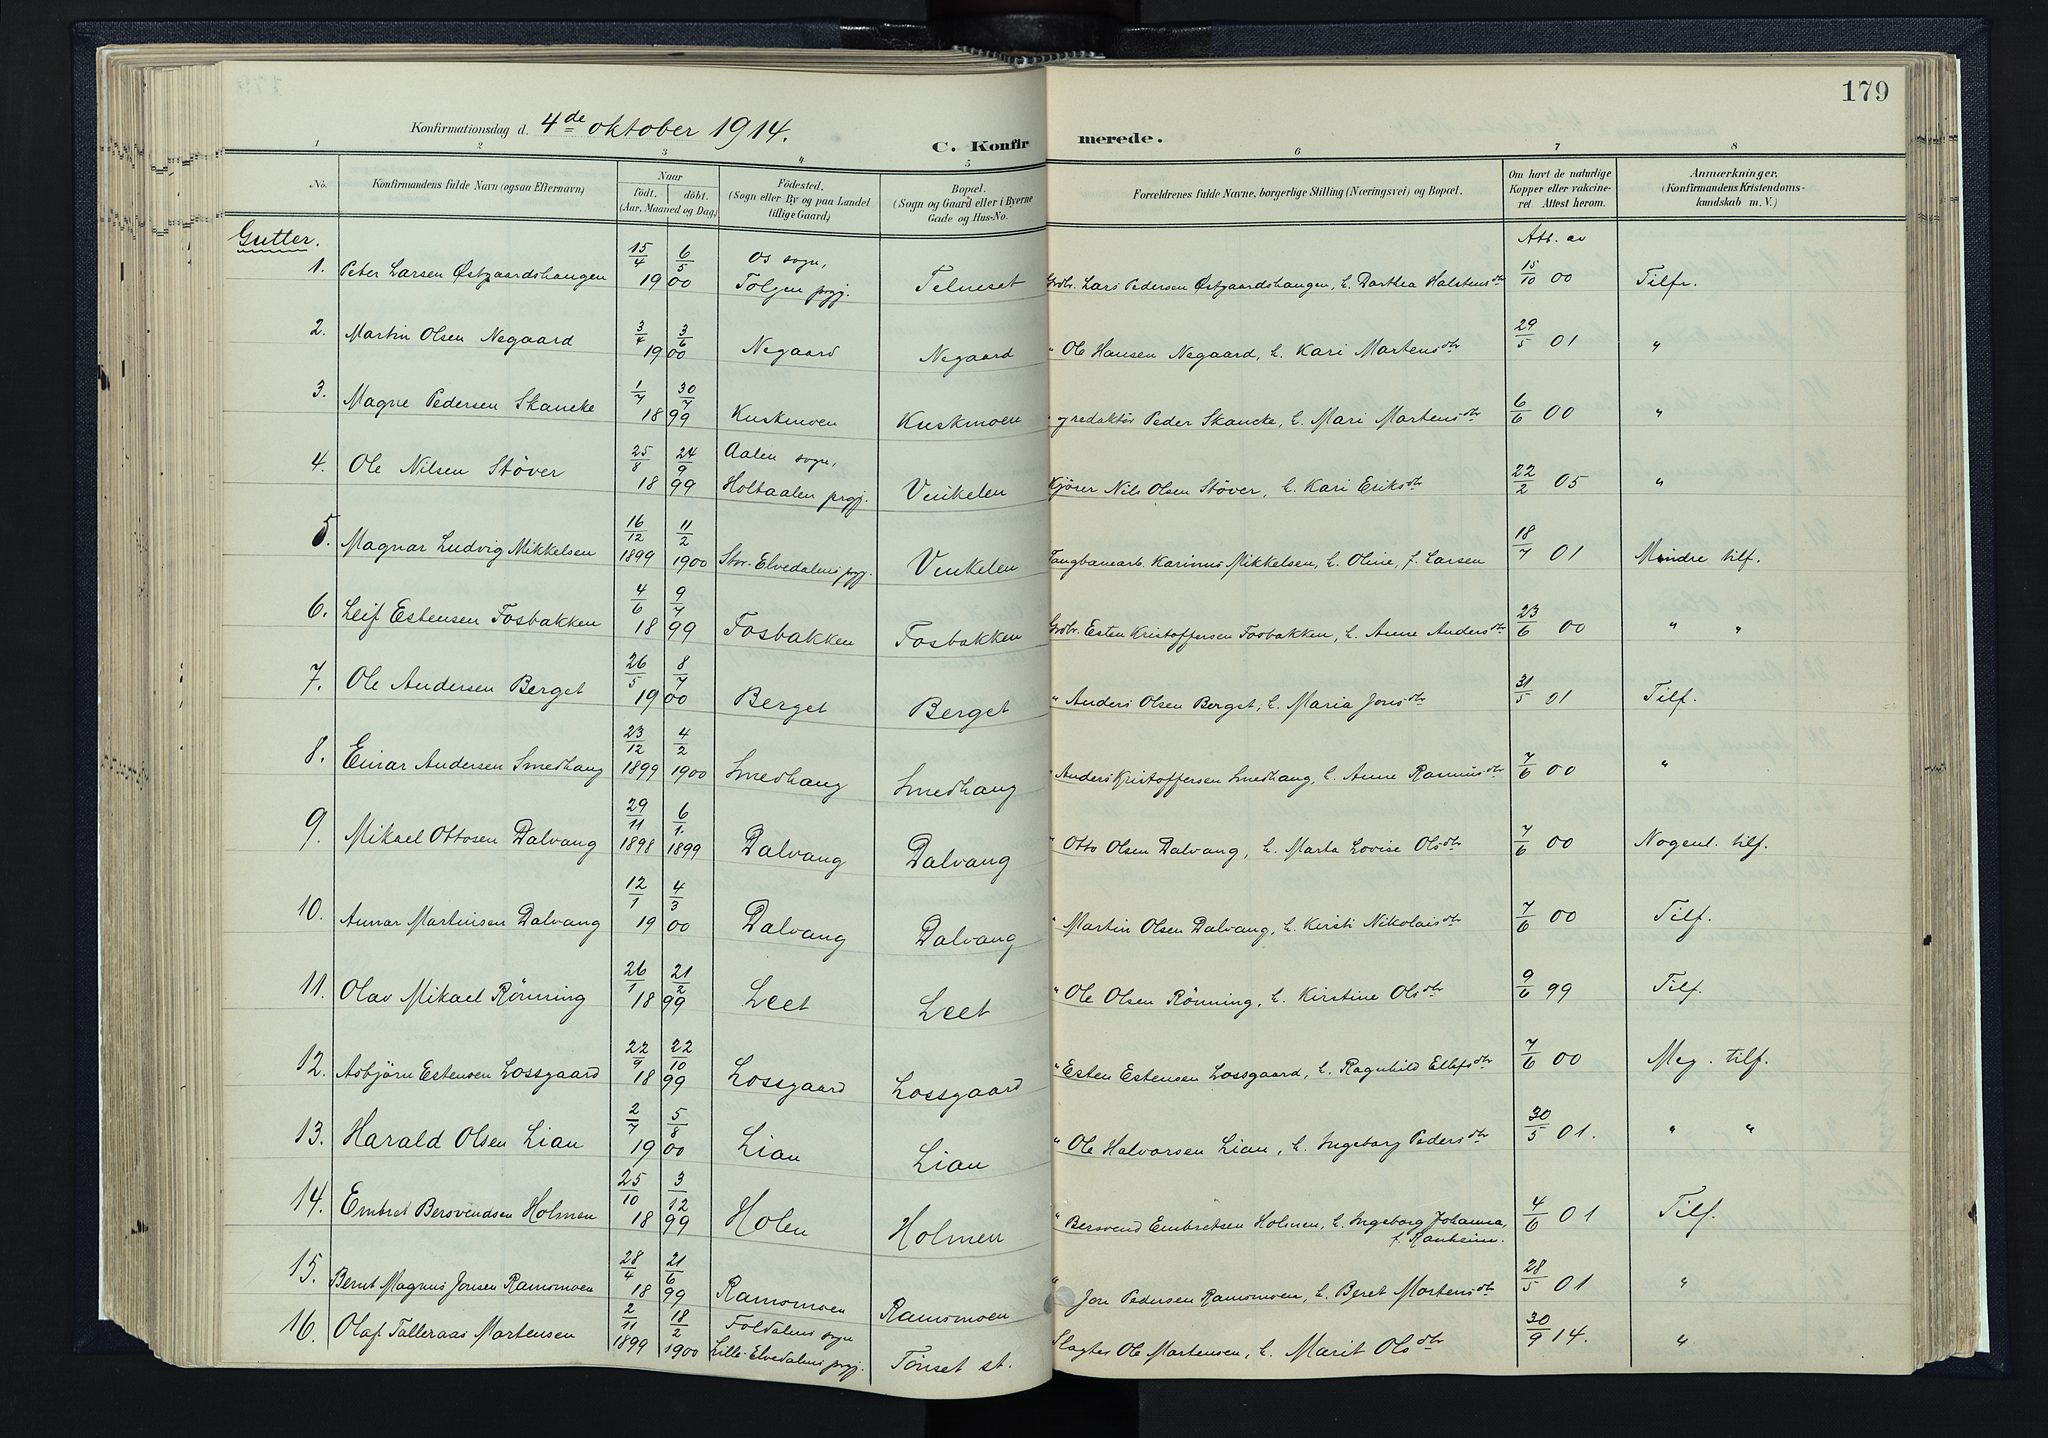 179
Konfirmationsdag d. 4de oktober 1914.
C. Konfirmerede.
1 2 3 4 5 6 7 8
No. Konfirmandens fulde Navn (ogsaa Efternavn) Naar født. døbt. (Aar, Maaned og Dag) Fødested. (Sogn eller By og paa Landet tillige Gaard) Bopæl. (Sogn og Gaard eller i Byerne Gade og Hus-No. Forældrenes fulde Navne, borgerlige Stilling (Næringsvei) og Bopæl. Om havt de naturlige Kopper eller vakcineret. Attest herom. Anmærkninger. (Konfirmandens Kristendomskundskab m. V.)
Gutter. Att. av
1. Peter Larsen Østgaardshaugen 15/4 6/5 1900 Os sogn, Tolgen prgj. Telneset Grdbr. Lars Pedersen Østgaardshaugen, h. Darthea Halstensdtr 15/10 00 Tilfr.
2. Martin Olsen Negaard 3/4 3/6 1900 Negaard Negaard " Ole Hansen Negaard, h. Kari Martensdtr 29/5 01 "
3. Magne Pedersen Skancke 1/7 30/7 1899 Kuskmoen Kuskmoen " og redaktør Peder Skancke, h. Mari Martensdtr 6/6 00 "
4. Ole Nilsen Støver 25/8 24/9 1899 Aalen sogn, Holtaalen prgj. Vinkelen Kjører Nils Olsen Støver, h. Kari Eriksdtr 22/2 05 "
5. Magnar Ludvig Mikkelsen 16/12 1899 11/2 1900 Stor-Elvedalens prgj. Vinkelen Karinus Mikkelsen, h. Oline, f. Larsen 18/7 01 Mindre tilf.
6. Leif Estensen Fosbakken 4/6 9/7 1899 Fosbakken Fosbakken Grdbr. Esten Kristoffersen Fosbakken, h. Anne Andersdtr 23/6 00 " "
7. Ole Andersen Berget 26/5 8/7 1900 Berget Berget " Anders Olsen Berget, h. Maria Jonsdtr 31/5 01 Tilf.
8. Einar Andersen Smedhaug 23/12 1899 4/2 1900 Smedhaug Smedhaug " Anders Kristoffersen Smedhaug, h. Anne Rasmusdtr 7/6 00 "
9. Mikael Ottosen Dalvang 29/11 1898 6/1. 1899 Dalvang Dalvang " Otto Olsen Dalvang, h. Marta Lovise Olsdtr 7/6 00 Nogenl. tilf.
10. Annar Martinsen Dalvang 12/1 4/3 1900 Dalvang Dalvang " Martin Olsen Dalvang, h. Kirsti Nikolaisdtr 7/6 00 Tilf.
11. Olav Mikael Rønning 26/1 21/2 1899 Leet Leet " Ole Olsen Rønning, h. Kirstine Olsdtr 9/6 99 Tilf.
12. Asbjørn Estensen Lossgaard 22/9 22/10 1899 Lossgaard Lossgaard " Esten Estensen Lossgaard, h. Ragnhild Ellefsdtr 7/6 00 Meg. tilf.
13. Harald Olsen Lian 2/7 5/8 1900 Lian Lian " Ole Halvorsen Lian, h. Ingeborg Pedersdtr 30/5 01. " "
14. Embret Bersvendsen Holmen 25/10 3/12 1899 Holen Holmen " Bersvend Embretsen Holmen, h. Ingeborg Johanna, f. Ranheim. 4/6 01 Tilf.
15. Bernt Magnus Jonsen Ramsmoen 28/4 21/6 1899 Ramsmoen Ramsmoen " Jon Pedersen Ramsmoen, h. Beret Martensdtr 28/5 01 "
16. Olaf Talleraas Martensen 2/11 1899 18/2 1900 Foldalens sogn Lille-Elvedalens prgj. Tønset st. Slagter Ole Martensen, h. Marit Olsdtr 30/9 14. "